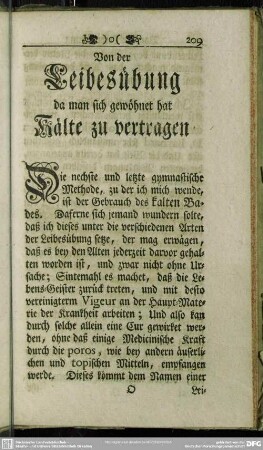 )o( 209
Von der
Leibesübung
da man sich gewöhnet hat
Kälte zu vertragen
Die nechste und letzte gymnastische
Methode, zu der ich mich wende,
ist der Gebrauch des kalten Ba-
des. Daferne sich jemand wundern solte,
daß ich dieses unter die verschiedenen Arten
der Leibesübung setze, der mag erwägen,
daß es bey den Alten jederzeit darvor gehal-
ten worden ist, und zwar nicht ohne Ur-
sache; Sintemahl es machet, daß die Le-
bens-Geister zurück treten, und mit desto
vereinigterm Vigeur an der Haupt-Mate-
rie der Krankheit arbeiten; Und also kan
durch solche allein eine Cur gewirket wer-
den, ohne daß einige Medicinische Kraft
durch die poros, wie bey andern äuserli-
chen und topischen Mitteln, empfangen
werde. Dieses kömmt dem Namen einer
O Lei-
DFG